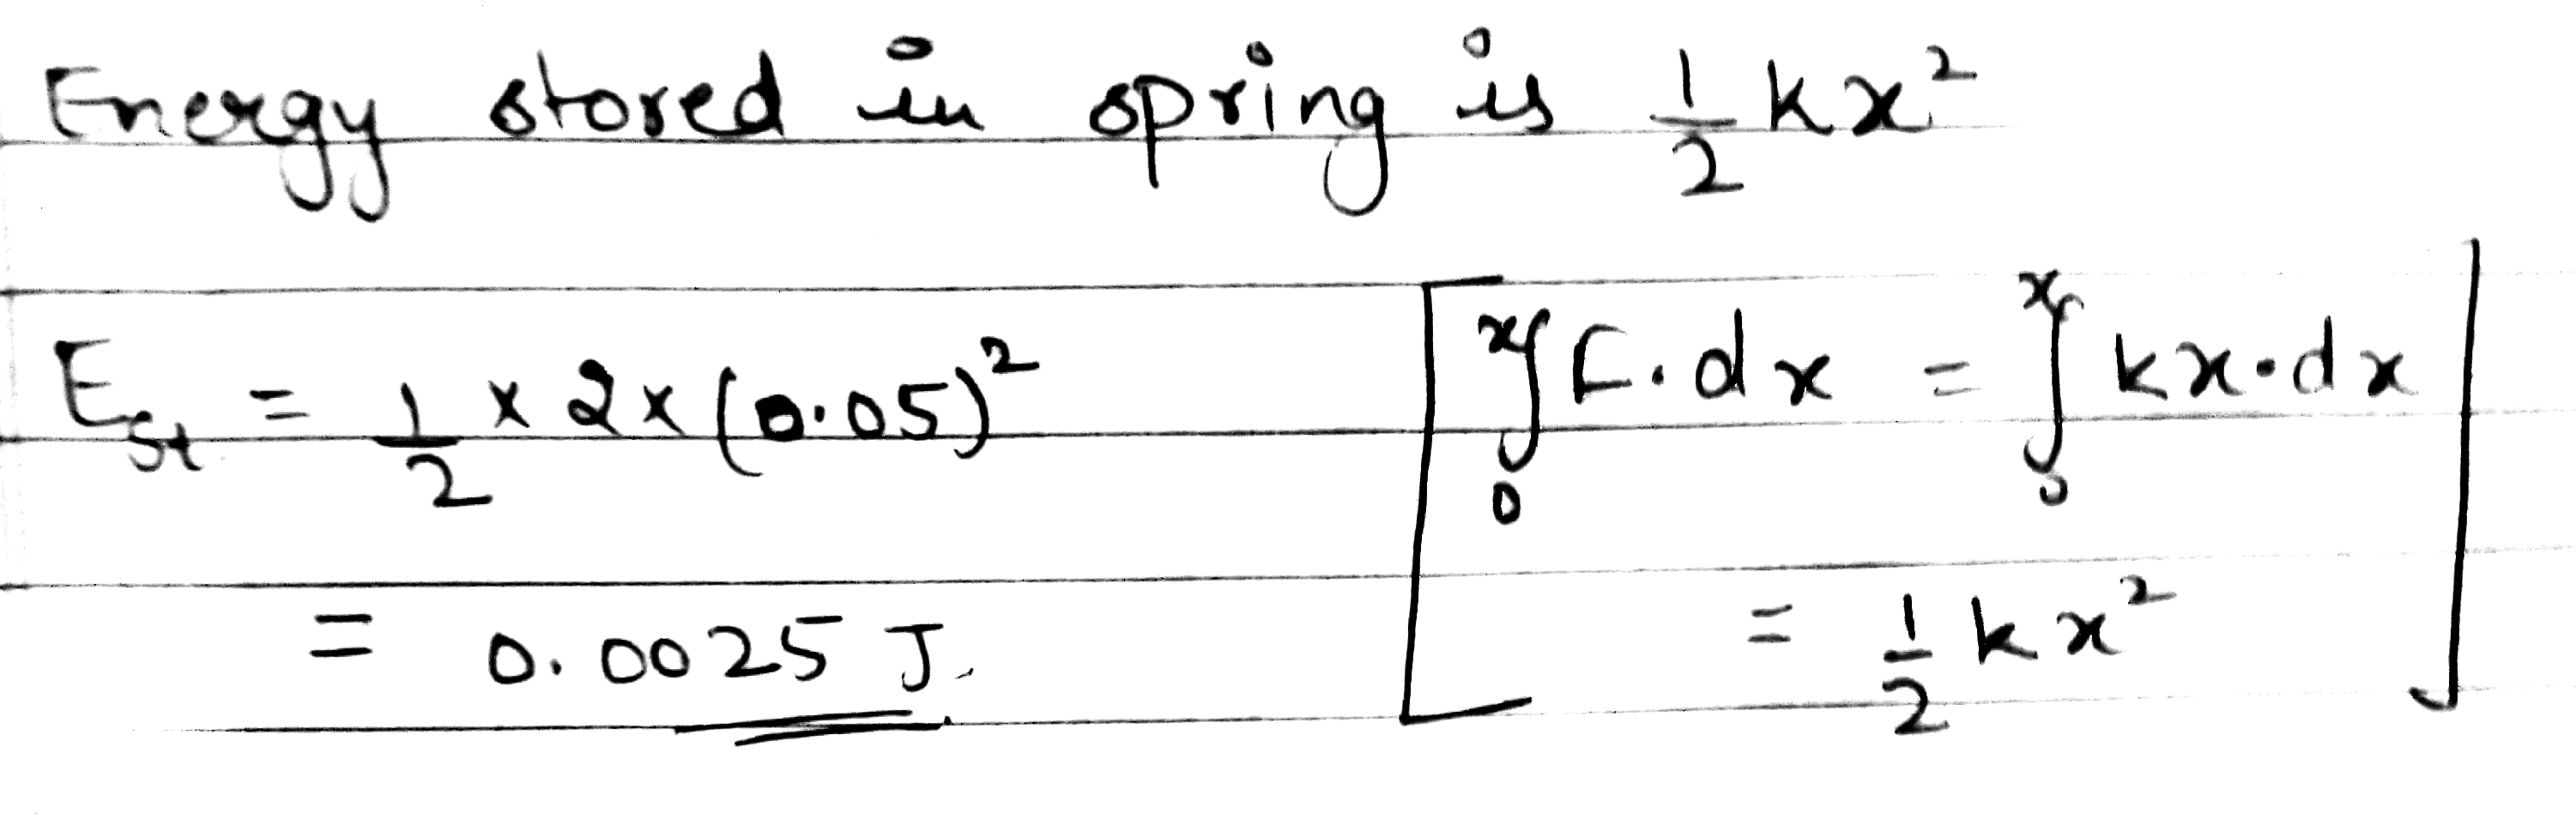 Energy stored in spring is 1/2 kx²
E_St = 1/2 × 2 × (0.05)²
= 0.0025 J.
[ ∫₀ˣ F.dx = ∫₀ˣ kx.dx
= 1/2 kx² ]